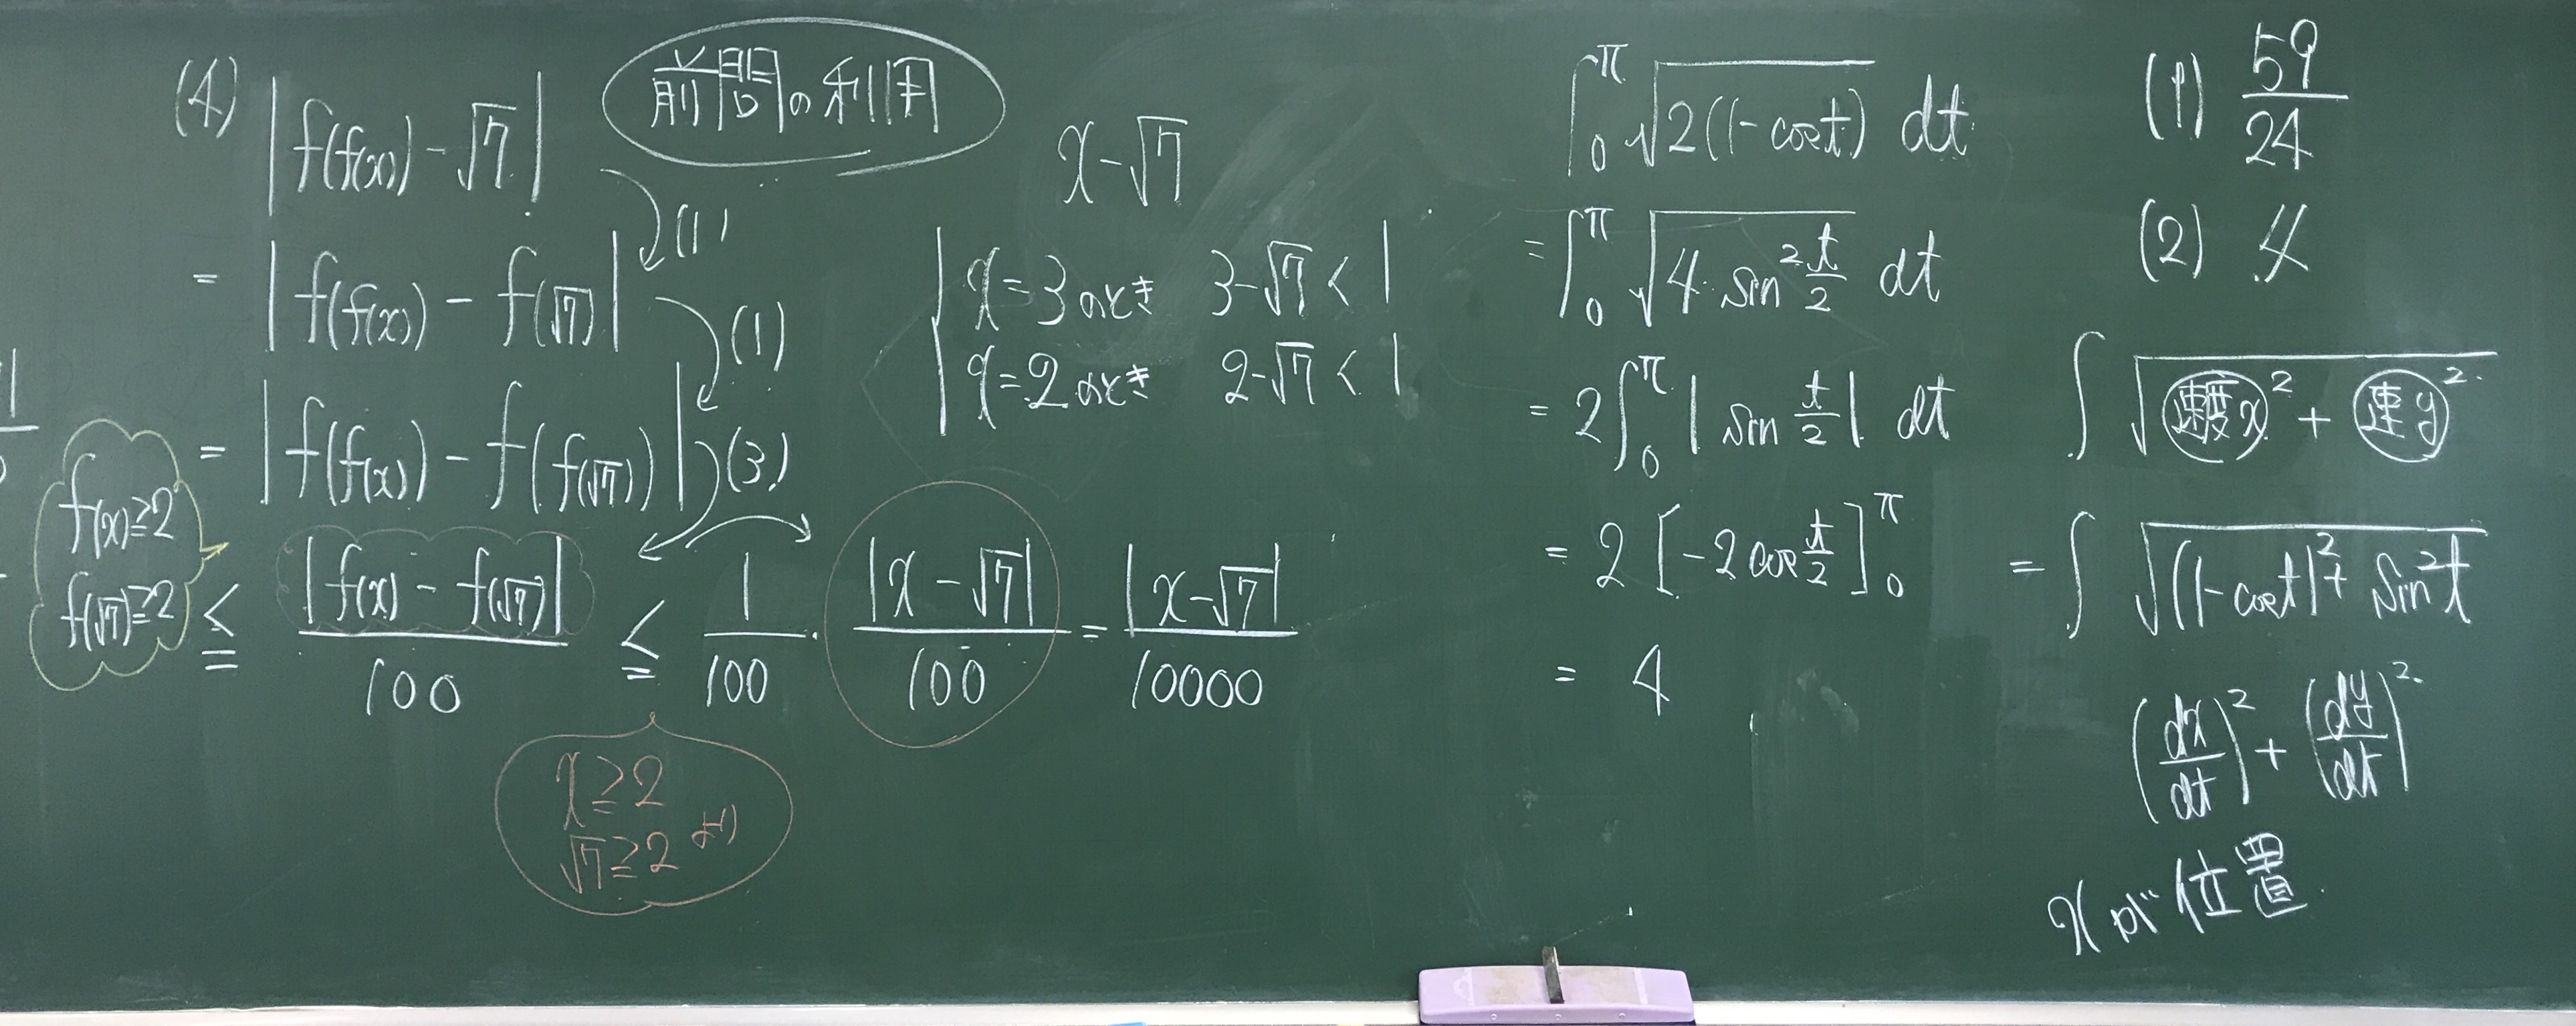 (4) |f(f(x)) - √7|
前問の利用
(1)
= |f(f(x)) - f(√7)|
(1)
= |f(f(x)) - f(f(√7))|
(3)
f(x)≧2
f(√7)≧2
≦ |f(x) - f(√7)| / 100 ≦ 1/100 · |x - √7| / 100 = |x-√7| / 10000
x≧2
√7≧2 より
x-√7
x=3のとき 3-√7 < 1
x=2のとき 2-√7 < 1
∫₀^π √(2(1-cos t)) dt
= ∫₀^π √(4·sin² t/2) dt
= 2∫₀^π |sin t/2| dt
= 2[-2cos t/2]₀^π
= 4
(1) 59/24
(2) 4
∫√(速度x² + 速y²)
= ∫√((1-cos t)² + sin² t)
(dx/dt)² + (dy/dt)²
xが位置